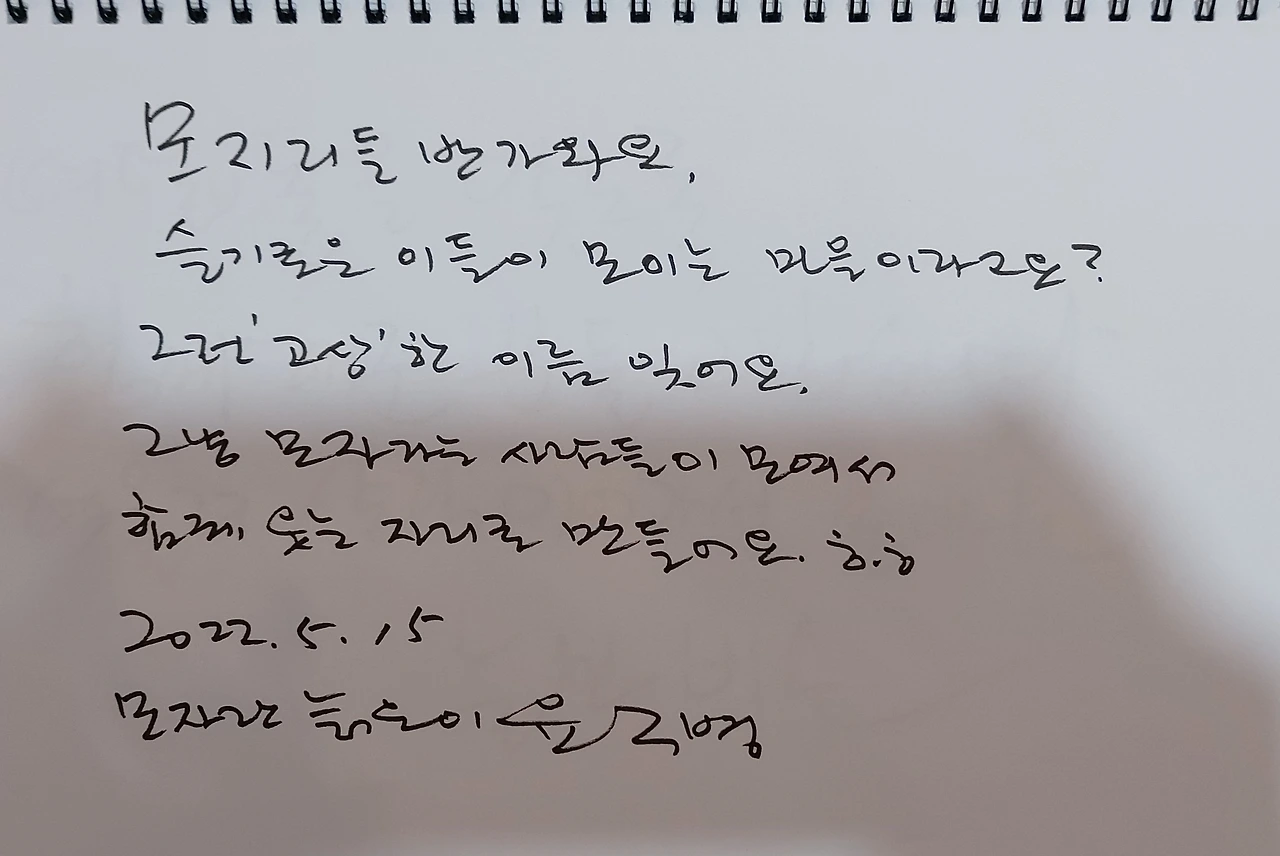 모지리들 반가와요.
슬기로운 이들이 모이는 마을이라고요?
그런 '고상'한 이름 잊어요.
그냥 모자라는 사람들이 모여서
함께 웃는 자리로 만들어요. ㅎ.ㅎ
2022. 5. 15
모자란 늙으이 윤구병